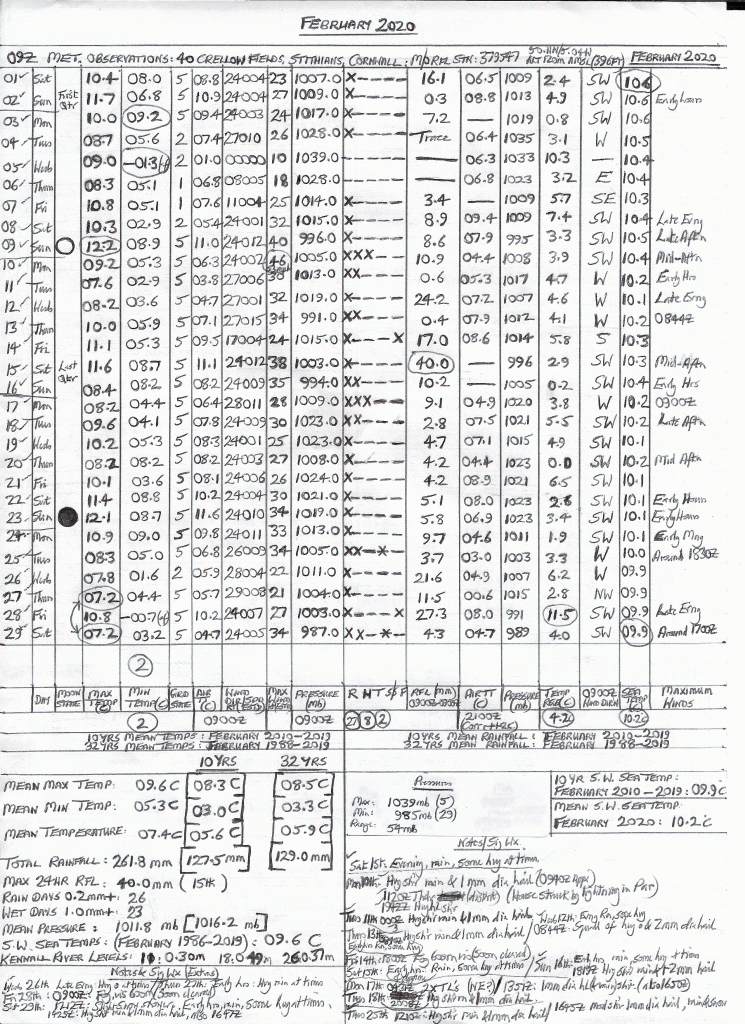 FEBRUARY 2020
09Z MET. OBSERVATIONS: 40 CRELLOW FIELDS, STITHIANS, CORNWALL: MO RFL STN: 379547 50.11N/5.04W ALT 120m AMSL (396FT) FEBRUARY 2020
01 Sat 10.4 08.0 5 08.8 24004 23 1007.0 X---- 16.1 06.5 1009 2.4 SW 10.6
02 Sun First Qtr 11.7 06.8 5 10.9 24004 27 1009.0 X---- 0.3 08.8 1013 4.9 SW 10.6 Early hours
03 Mon 10.0 09.2 5 09.4 24003 24 1017.0 X---- 7.2 — 1019 0.8 SW 10.6
04 Tues 08.7 05.6 2 07.4 27010 26 1028.0 X---- Trace 06.4 1035 3.1 W 10.5
05 Wed 09.0 -01.3 2 01.0 00000 10 1039.0 ----- — 06.3 1033 10.3 — 10.4
06 Thurs 08.3 05.1 1 06.8 08005 18 1028.0 ----- — 06.8 1023 3.2 E 10.4
07 Fri 10.8 05.1 1 07.6 11004 25 1014.0 X---- 3.4 — 1009 5.7 SE 10.3
08 Sat 10.3 02.9 2 05.4 24001 32 1015.0 X---- 8.9 09.4 1009 7.4 SW 10.4 Late Evng
09 Sun 12.2 08.9 5 11.0 24012 40 996.0 X---- 8.6 07.9 995 3.3 SW 10.5 Late Aftn
10 Mon 09.2 05.3 5 06.3 24007 46 1005.0 XXX-- 10.9 04.4 1008 3.9 SW 10.4 Mid-Aftn
11 Tues 07.6 02.9 5 03.8 27006 38 1013.0 XX--- 0.6 05.3 1017 4.7 W 10.2 Early Hrs
12 Wed 08.2 03.6 5 04.7 27001 32 1019.0 X---- 24.2 07.2 1007 4.6 W 10.1 Late Evng
13 Thurs 10.0 05.9 5 07.1 27015 34 991.0 XX--- 0.4 07.9 1012 4.1 W 10.2 0844Z
14 Fri 11.1 05.3 5 09.5 17004 24 1015.0 X---X 17.0 08.6 1014 5.8 S 10.3
15 Sat Last Qtr 11.6 08.7 5 11.1 24012 38 1003.0 X---- 40.0 — 996 2.9 SW 10.3 Mid-Aftn
16 Sun 08.4 08.2 5 08.2 24009 35 994.0 XX--- 10.2 — 1005 0.2 SW 10.4 Early Hrs
17 Mon 08.2 04.4 5 06.4 28011 28 1009.0 XXX-- 9.1 04.9 1020 3.8 W 10.2 0900Z
18 Tues 09.6 04.1 5 07.8 24009 30 1023.0 XX--- 2.8 07.5 1021 5.5 SW 10.2 Late Aftn
19 Wed 10.2 05.3 5 08.3 24001 25 1023.0 X---- 4.7 07.1 1015 4.9 SW 10.1
20 Thurs 08.2 08.2 5 08.2 24003 27 1008.0 X---- 4.2 04.4 1023 0.0 SW 10.2 Mid Aftn
21 Fri 10.1 03.6 5 08.1 24006 26 1024.0 X---- 4.2 08.9 1021 6.5 SW 10.1
22 Sat 11.4 08.8 5 10.2 24004 30 1021.0 X---- 5.1 08.0 1023 2.6 SW 10.1 Early Hours
23 Sun 12.1 08.7 5 11.6 24010 34 1019.0 X---- 5.8 06.9 1023 3.4 SW 10.1 Early Hours
24 Mon 10.9 09.0 5 09.8 24011 33 1013.0 X---- 9.7 04.6 1011 1.9 SW 10.1 Early Mng
25 Tues 08.3 05.0 5 06.8 26009 34 1005.0 XX-X- 3.7 03.0 1003 3.3 W 10.0 Around 1830Z
26 Wed 07.8 01.6 2 05.9 28004 22 1011.0 X---- 21.6 04.9 1007 6.2 W 09.9
27 Thurs 07.2 04.4 5 05.7 29008 21 1004.0 X---- 11.5 00.6 1015 2.8 NW 09.9
28 Fri 10.8 -00.7 5 10.2 24007 27 1003.0 X---X 27.3 08.0 991 11.5 SW 09.9 Late Evng
29 Sat 07.2 03.2 5 04.7 24005 34 987.0 XX-X- 4.3 04.7 989 4.0 SW 09.9 Around 1700Z
2
DAY MOON STATE MAX TEMP(C) MIN TEMP(C) GRD STATE AIR TT(C) WIND DIR/SPD MAX WIND PRESSURE (mb) R H T S F RFL (mm) 0900Z-0900Z AIR TT (C) PRESSURE (mb) TEMP RGE(C) 0900Z WIND DIRN SEA TEMP(C) MAXIMUM WINDS
2 0900Z 0900Z 27 8 2 2100Z 4.2 10.2C
10 YRS MEAN TEMPS: FEBRUARY 2010-2019 10 YRS MEAN RAINFALL: FEBRUARY 2010-2019
32 YRS MEAN TEMPS: FEBRUARY 1988-2019 32 YRS MEAN RAINFALL: FEBRUARY 1988-2019
10 YRS 32 YRS
MEAN MAX TEMP: 09.6 C 08.3 C 08.5 C
MEAN MIN TEMP: 05.3 C 03.0 C 03.3 C
MEAN TEMPERATURE: 07.4 C 05.6 C 05.9 C
TOTAL RAINFALL: 261.8 mm 127.5 mm 129.0 mm
MAX 24HR RFL: 40.0 mm (15th)
RAIN DAYS 0.2mm+: 26
WET DAYS 1.0mm+: 23
MEAN PRESSURE: 1011.8 mb [1016.2 mb]
S.W. SEA TEMPS: (FEBRUARY 1986-2019): 09.6 C
KENNALL RIVER LEVELS: 10: 0.30m 18: 0.49m 26: 0.37m
Notes & Sig Wx (Extra)
Pressures
Max: 1039mb (5)
Min: 985mb (29)
Range: 54mb
10 YR S.W. SEA TEMP:
FEBRUARY 2010 - 2019: 09.9 C
MEAN S.W. SEA TEMP
FEBRUARY 2020: 10.2 C
Notes/Sig Wx
Sat 1st. Evening, rain, some hvy at times
Mon 10th: Hvy shr rain & 1 mm dia hail (0940Z Appx)
(House struck by lightning in Par)
Tues 11th 0000Z Hvy shr rain & 1mm dia hail
0844Z: Squall of hvy & 2mm dia hail
Fri 14th 1800Z Fog 600m vis (soon cleared)